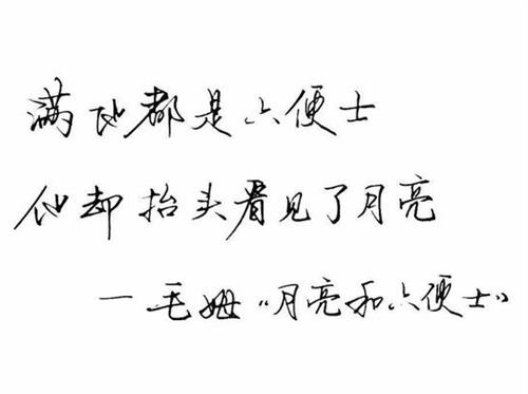 满地都是六便士
他却抬头看见了月亮
一毛姆“月亮和六便士”